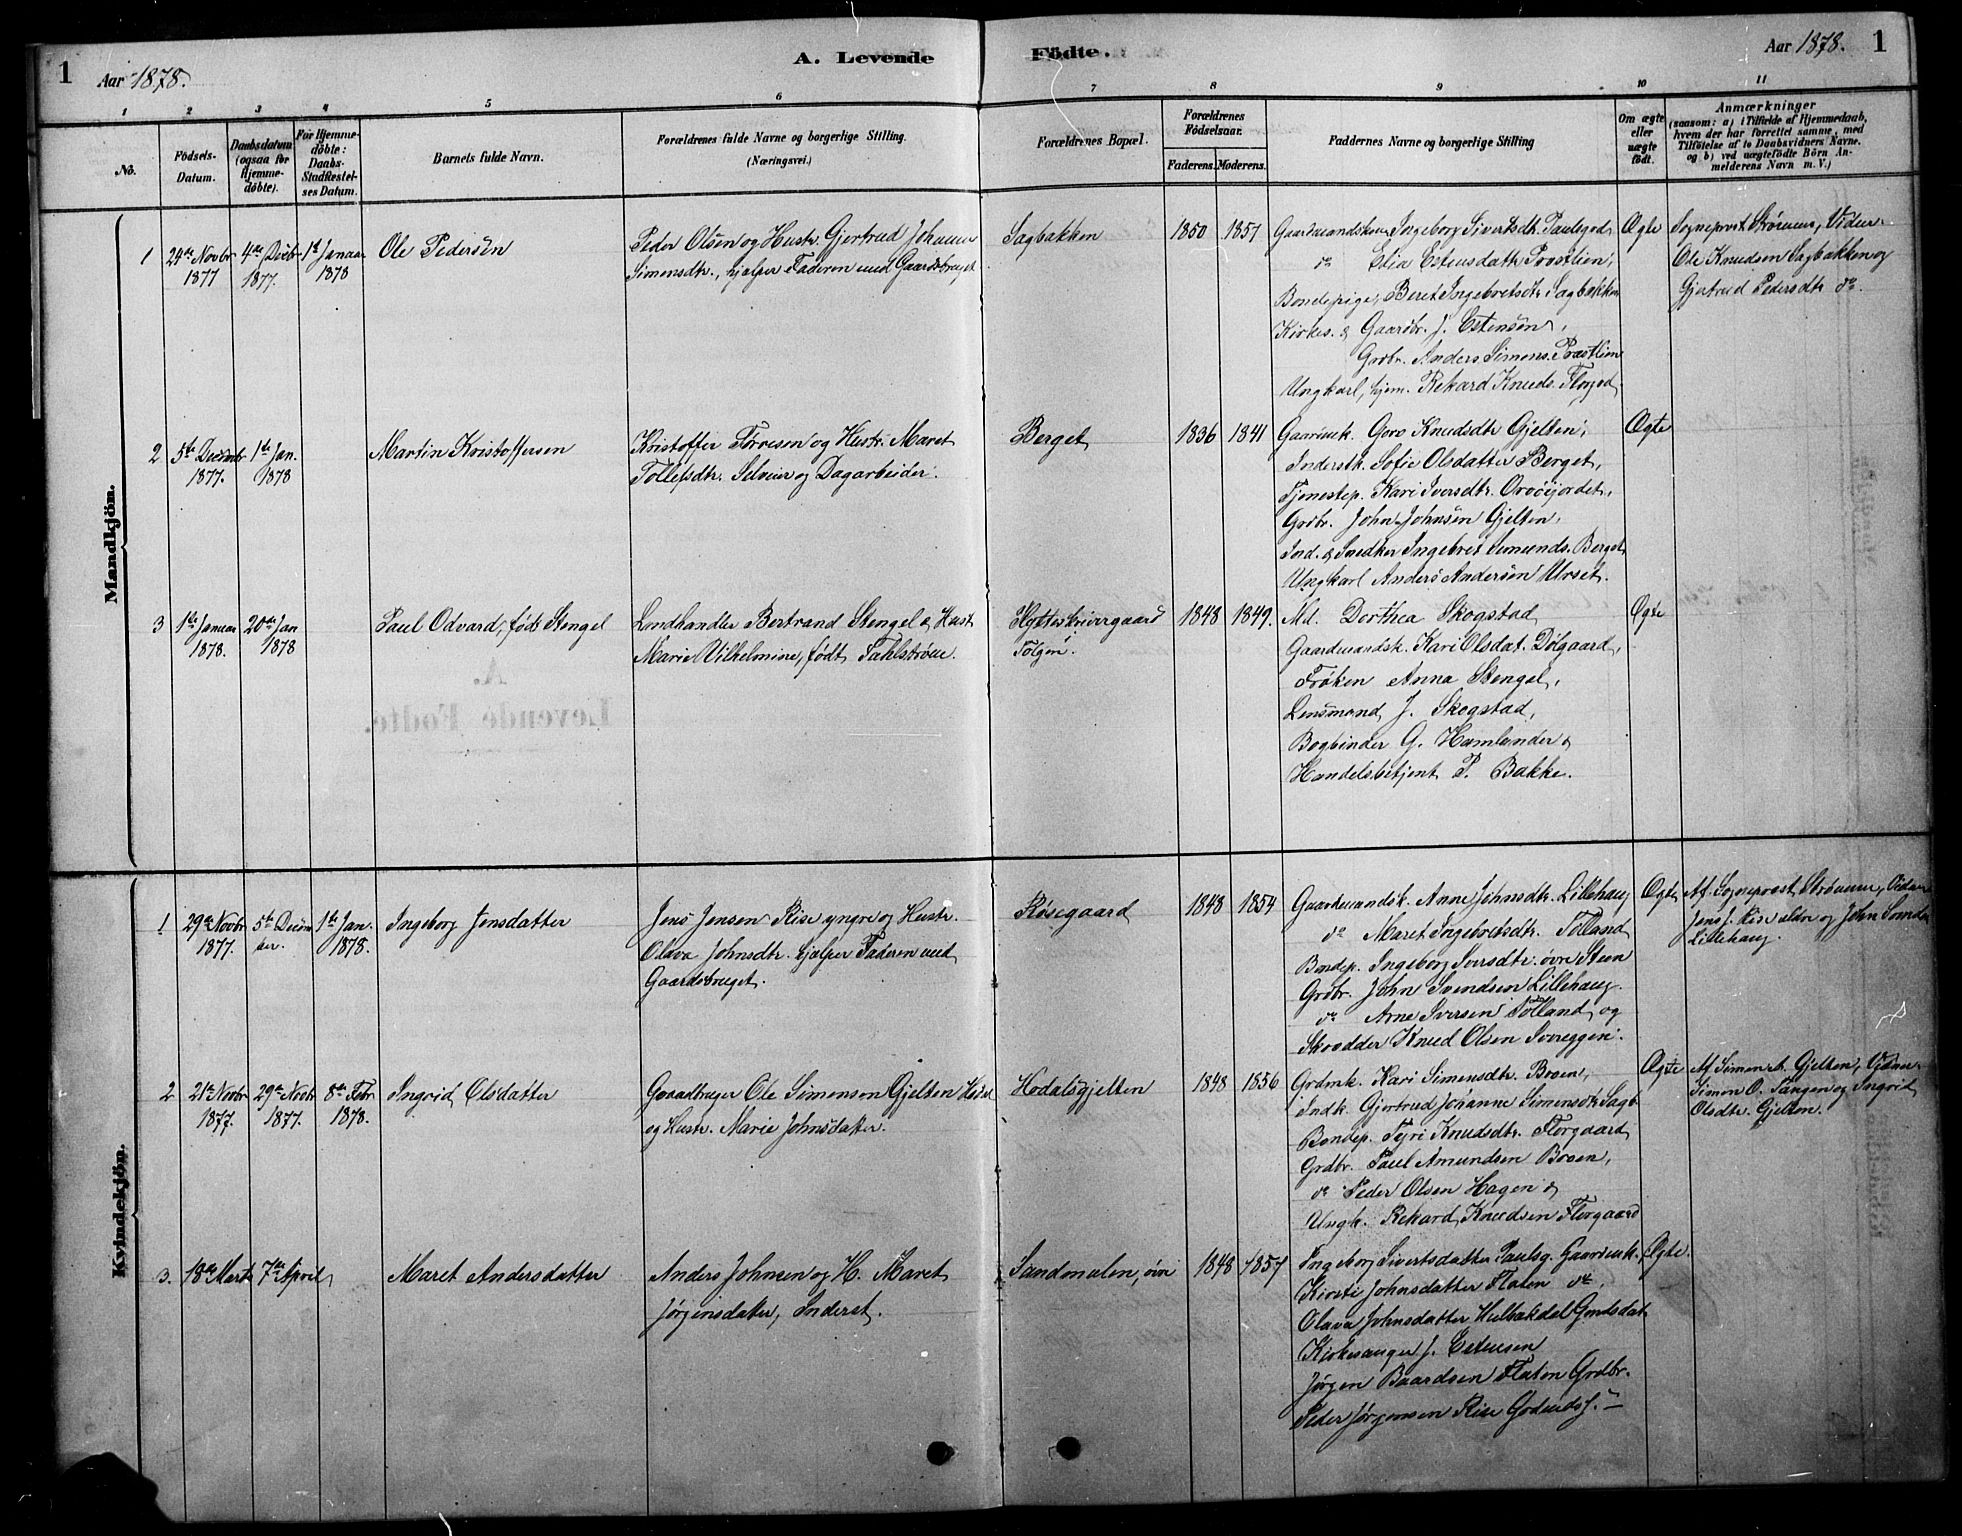 1
Aar 1878.
A. Levende
Födte.
Aar 1878.
1
1
2
3
4
5
6
7
8
9
10
11
No.
Födsels-
Datum.
Daabsdatum
(ogsaa for
Hjemme-
döbte).
For Hjemme-
döbte:
Daabs-
Stadfæstel-
ses Datum.
Barnets fulde Navn.
Forældrenes fulde Navne og borgerlige Stilling.
(Næringsvei.)
Forældrenes Bopæl.
Forældrenes
Födselsaar.
Faderens.
Moderens.
Faddernes Navne og borgerlige Stilling
Om ægte
eller
uægte
født.
Anmærkninger
(saasom: a) i Tilfælde af Hjemmedaab,
hvem der har forrettet samme, med
Tilföielse af to Daabsvidners Navne.
og b) ved uægtefödte Börn An-
melderens Navn m. V.)
Mandkjön.
1
24de Novbr
1877
4de Decbr
1877.
1st Januar
1878
Ole Pedersön
Peder Olsen og Hustr. Gjertrud Johanne
Simensdtr., hjælper Faderen med Gaardsbruget
Sagbakken
1850
1857
Gaardmandskone Ingeborg Sivertsdtr. Paulsgrd
do Estensdattr Prostlien,
Bondepige, Beret Ingebretsdtr. Sagbakken
Kirkes. & Gaardbr. J. Estensön,
Grdbr. Anders Simens. Præstlien
Ungkarl, hjem. Rekard Knuds.
Ægte
Sogneprest Strömme, Vidner
Ole Knudsen Sagbakken og
Gjertrud Pedersdtr do.
2
5te Decembr
1877.
1ste Jan.
1878
Martin Kristoffersen
Kristoffer og Hustr. Maret
Tollefsdtr. Selveier og Dagarbeider.
Berget
1836
1841
Gaardmk. Goro Knudsdtr Gjelten,
Inderstk. Sofie Olsdatter Berget,
Tjenestep. Kari Iversdtr.
Grdbr. John Johnsön Gjelten,
Ind. & Snedker Ingebret Simunds. Berget
Ungkarl Anders Andersön Urset.
Ægte
3
1ste Januar
1878.
20de Jan
1878
Paul Odvard, født Stengel
Landhandler Bertrand Stengel & Hustr
Marie Vilhelmine, født Fahlström.
Hytteskrivergaard
Tolgen.
1848
1849.
Md. Dorthea Skogstad
Gaardmandsk. Kari Olsdat. Dølgaard,
Frøken Anna Stengel,
Lensmand J. Skogstad,
Bogbinder G. Hamlander &
Handelsbetjent P. Bakke.
Ægte
Kvindekjön.
1
29de Novbr
1877.
5te Decem
ber.
1ste Jan.
1878.
Ingeborg Jensdatter
Jens Jensen Rise yngre og Hustr.
Olava Johnsdtr. hjælper Faderen med
Gaardsbruget.
Røsegaard
1848
1854
Gaardmandsk. Anne Johnsdtr. Lillehaug
do Maret Ingebretsdtr. Tolland
Bondep. Ingeborg Iversdtr. övre Steen
Grdbr. John Svendsen Lillehaug.
do Arne Iversen Tolland og
Skrædder Knud Olsen
Ægte
Af Sogneprest Strömme, Vidner
Jens J. Rise ældre og John Svends
Lillehaug.
2
21de Novbr
1877.
29de Novbr
1877.
8de Febr
1878.
Ingrid Olsdatter
Gaardbruger Ole Simensen Gjelten
og Hustr. Marie Johnsdatter.
Hodalsgjelten
1848
1856
Grdmk. Kari Simensdtr. Broen,
Indk. Gjertrud Johanne Simensdtr Sagb
Bondep. Tyri Knudsdtr. Florgaard
Grdbr. Paul Amundsen Broen,
do Peder Olsen Hagen &
Ungk. Rekard Knudsen Florgaard
Ægte
Af Simen Gjelten, Vidner
Simon O. Tangen og Ingrid
Olsdtr. Gjelten.
3.
18de Marts
7de April
Maret Andersdatter
Anders Johnsen og H. Maret
Jörgensdatter, Inderst.
Sandmælen, övre
1848
1857
Ingeborg Sivertsdatter Paulsg. Gaardmk.
Kirsti Johnsdatter Flaten do.
Olava Johnsdatter Gmdsdat.
Kirkesanger J. Estensen
Jörgen Baardsen Flaten Grdbr.
Peder Jörgensen Rise
Ægte.
A.
Levende Födte.